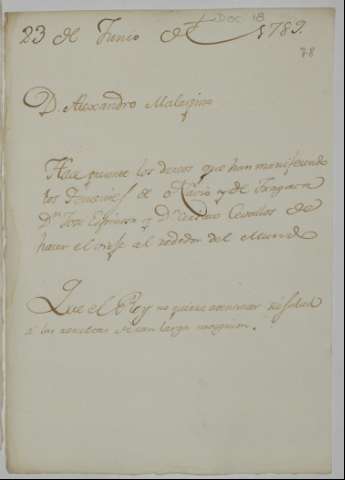 DOC 18
23 de Junio de 1789.
78
D. Alexandro Malaspina
Hace presente los deseos que han manifestado
los Tenientes de Navio y de Fragata
Dn. Jose Espinosa y Dn. Ciriaco Cevallos de
hacer el viage al rededor del Mundo
Que el Rey no quiere aventurar su salud
á las resultas de tan larga navegacion.